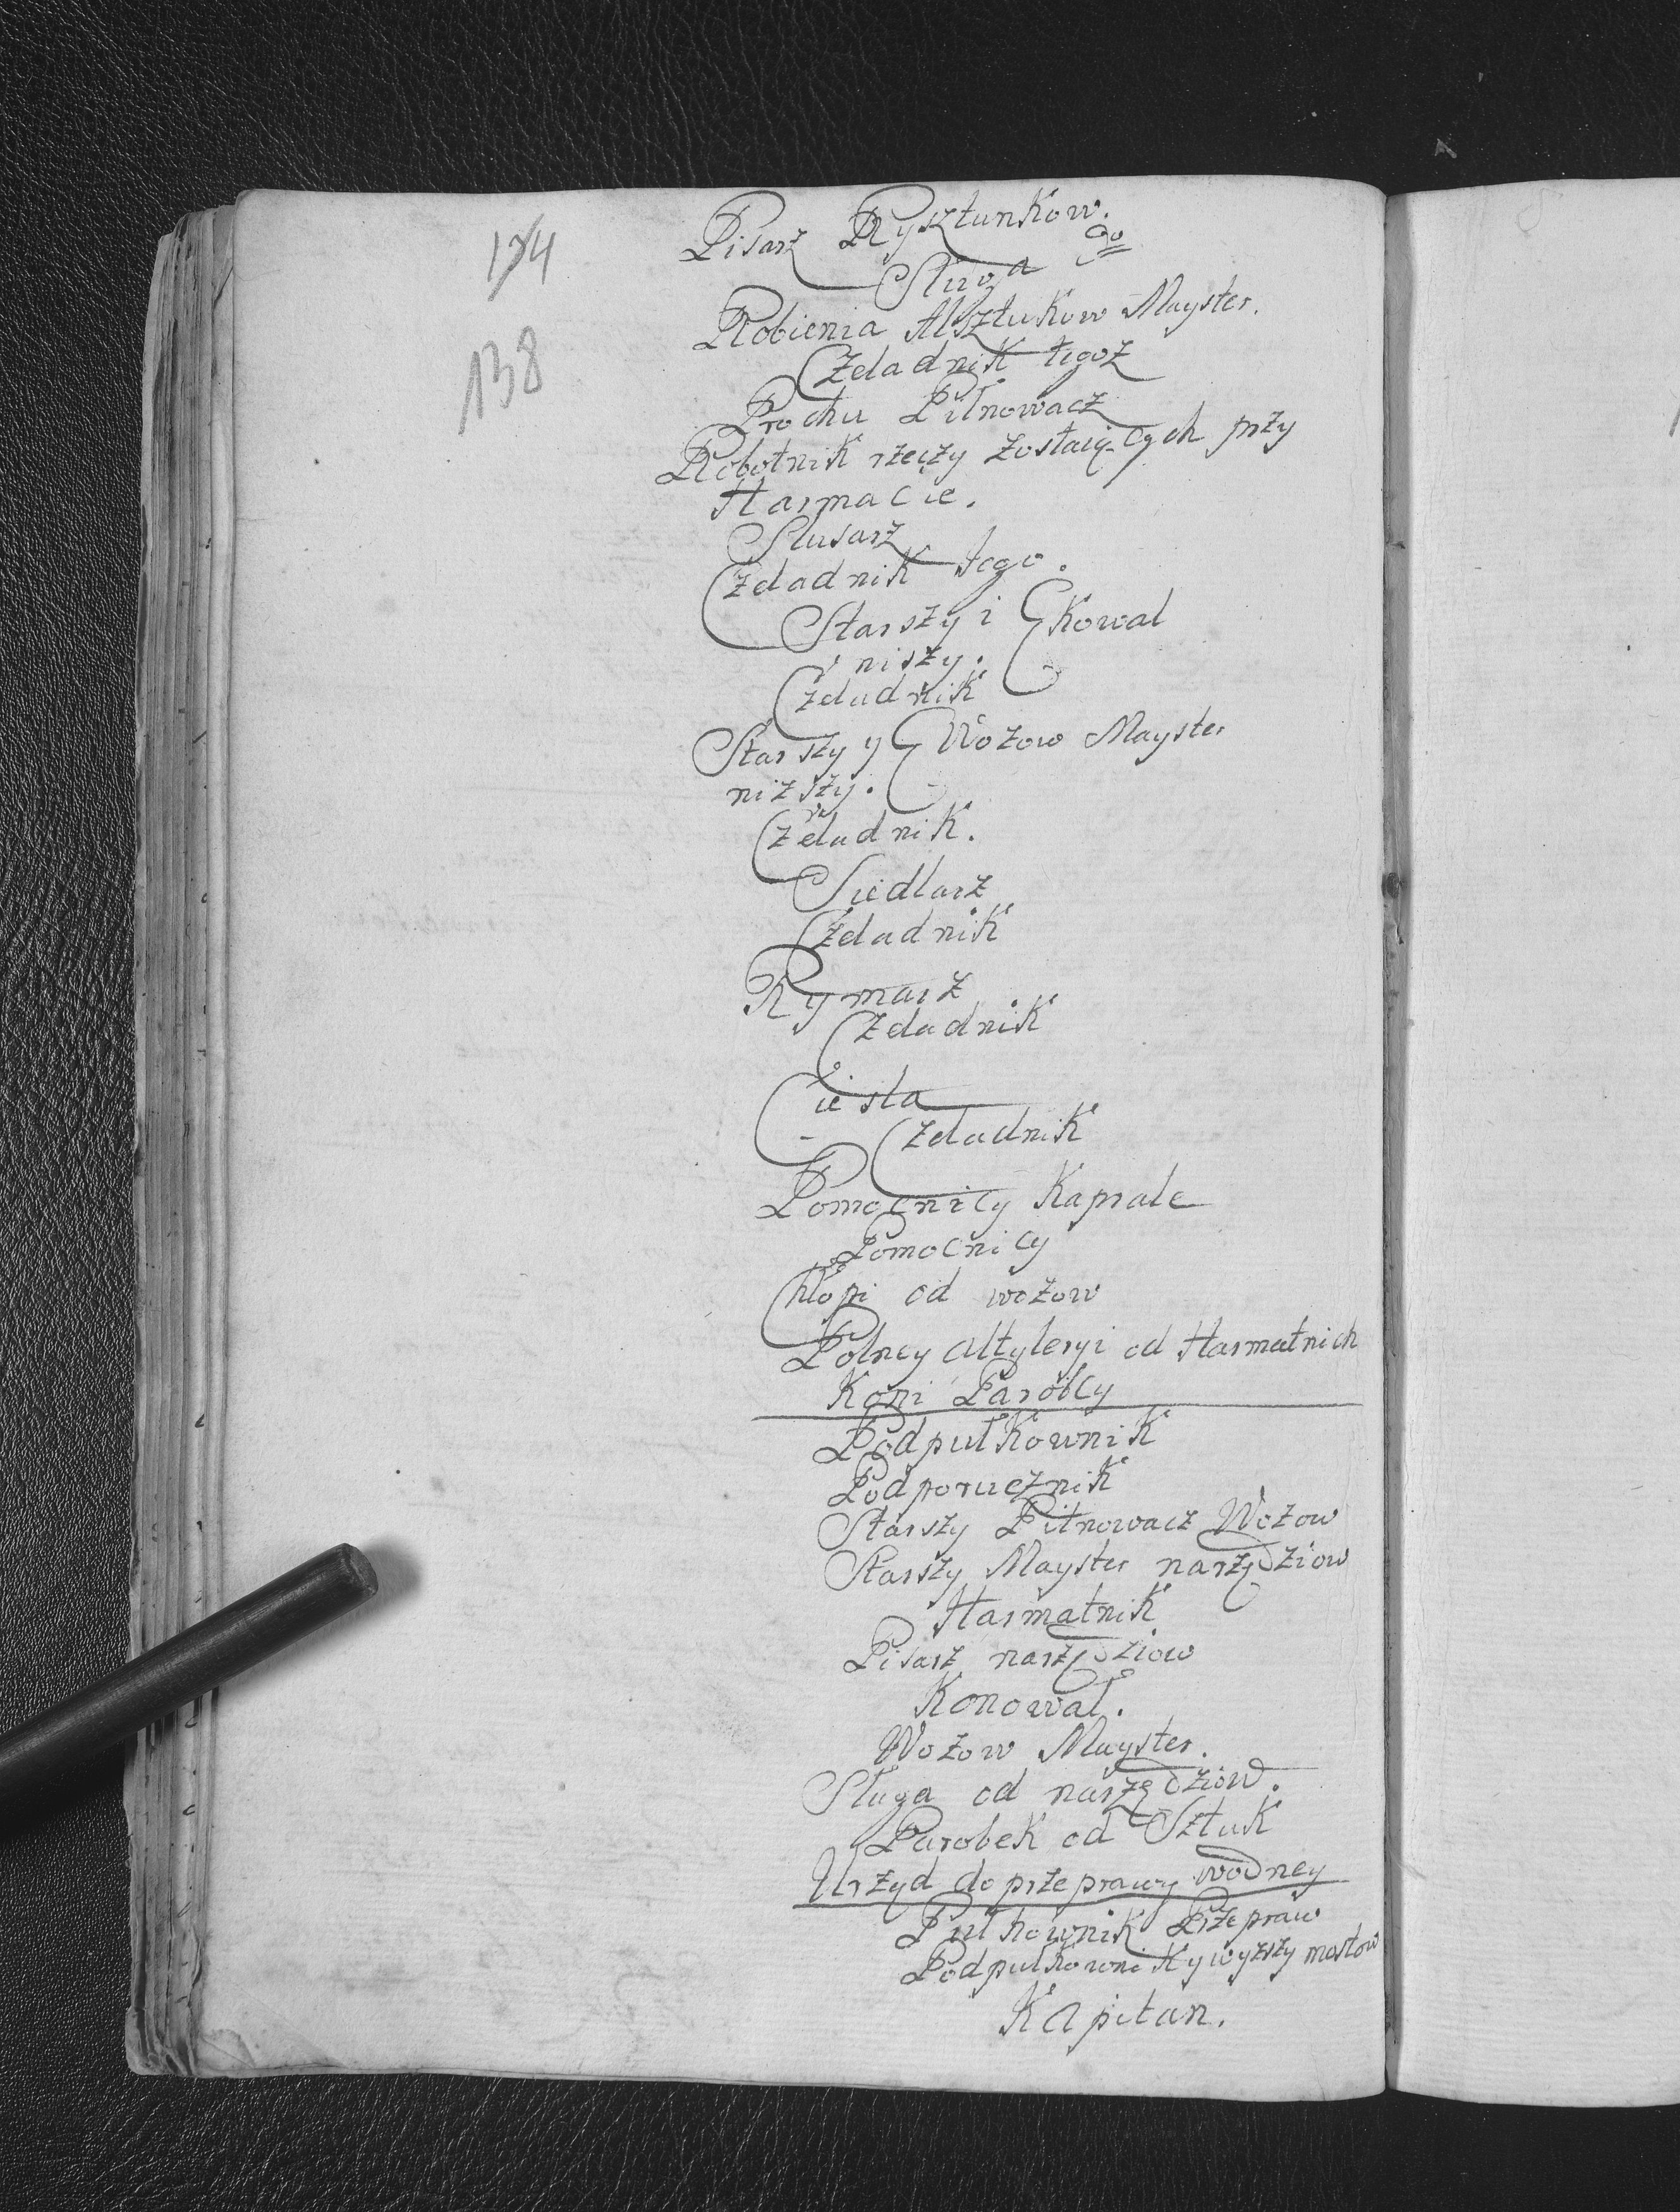 174
138
Pisarz Rysztunkow.
Sługa go
Robienia Alsztukow Mayster.
Czeladnik tegoż
Prochu Pilnowacz
Robotnik rzeczy zostaią-cych przy
Harmacie.
Slusarz
Czeladnik tego.
Starszy i Kowal
niszy.
Czeladnik
Starszy y Wozow Mayster
nizszy.
Czeladnik.
Siedlarz
Czeladnik
Rymarz
Czeladnik
Ciesla
Czeladnik
Pomocnicy Kaprale
Pomocnicy
Chłopi od wozow
Polney Altyleryi od Harmatnich
Koni Parobcy
Podpułkownik
Podporucznik
Starszy Pilnowacz Wozow
Starszy Mayster narzędziow
Harmatnik
Pisarz narzędziow
Konował.
Wozow Mayster.
Sługa od narzędziow.
Parobek od Sztuk
Urząd do przeprawy wodney
Pułkownik Przepraw
Podpułkownik y wyzszy mostow
Kapitan.